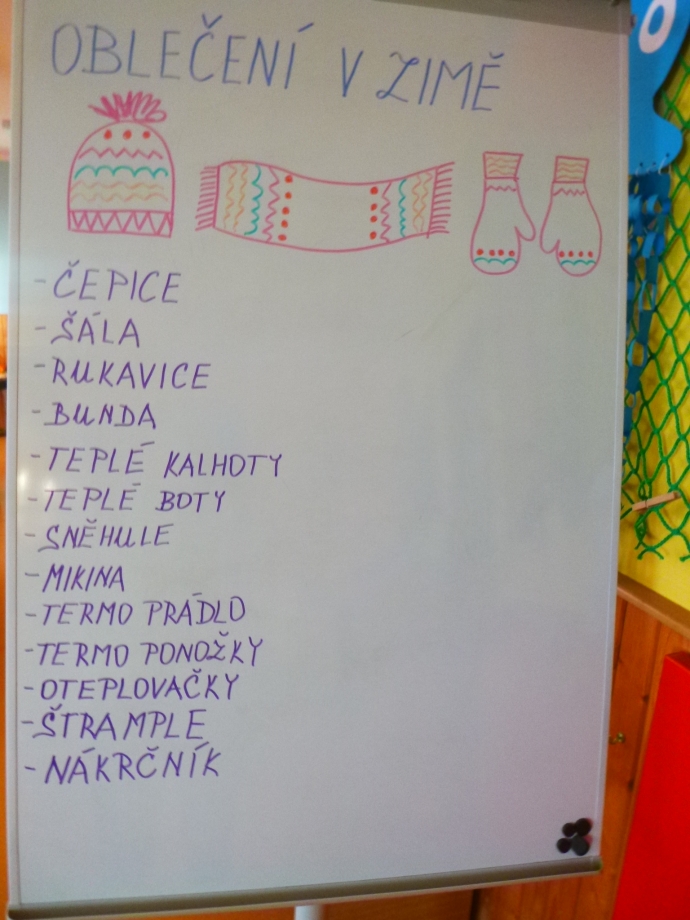 OBLEČENÍ V ZIMĚ
- ČEPICE
- ŠÁLA
- RUKAVICE
- BUNDA
- TEPLÉ KALHOTY
- TEPLÉ BOTY
- SNĚHULE
- MIKINA
- TERMO PRÁDLO
- TERMO PONOŽKY
- OTEPLOVAČKY
- ŠTRAMPLE
- NÁKRČNÍK